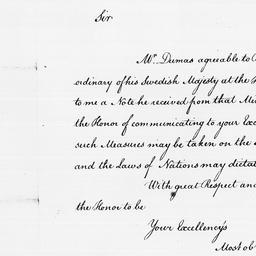 Sir
Mr. Dumas agreable to
ordinary of his Swedish Majesty at the
to me a Note he received from that
the Honor of communicating to your
such Measures may be taken on the
and the Laws of Nations may
With great Respect and
the Honor to be
Your Excellency's
Most